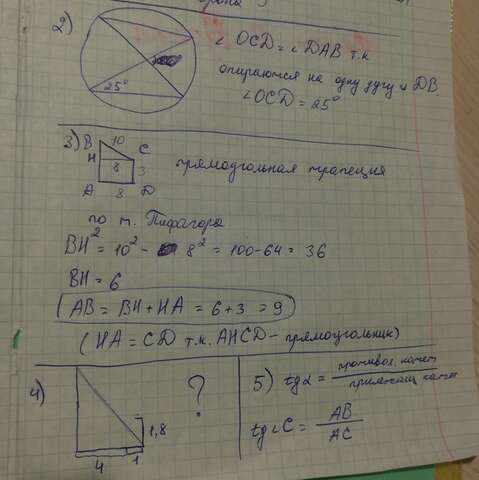 2)
∠ OCD = ∠ DAB т.к
опираются на одну дугу и DB.
∠OCD = 25°
25°
3) B 10 C
H 8 3
A 8 D
прямоугольная трапеция
по т. Пифагора
BH² = 10² - 8² = 100-64 = 36
BH = 6
AB = BH + HA = 6+3 = 9
(HA = CD т.к. AHCD - прямоугольник)
4)
1,8
4 1
?
5) tgα = противол. катет / прилежащ катет
tg∠C = AB / AC